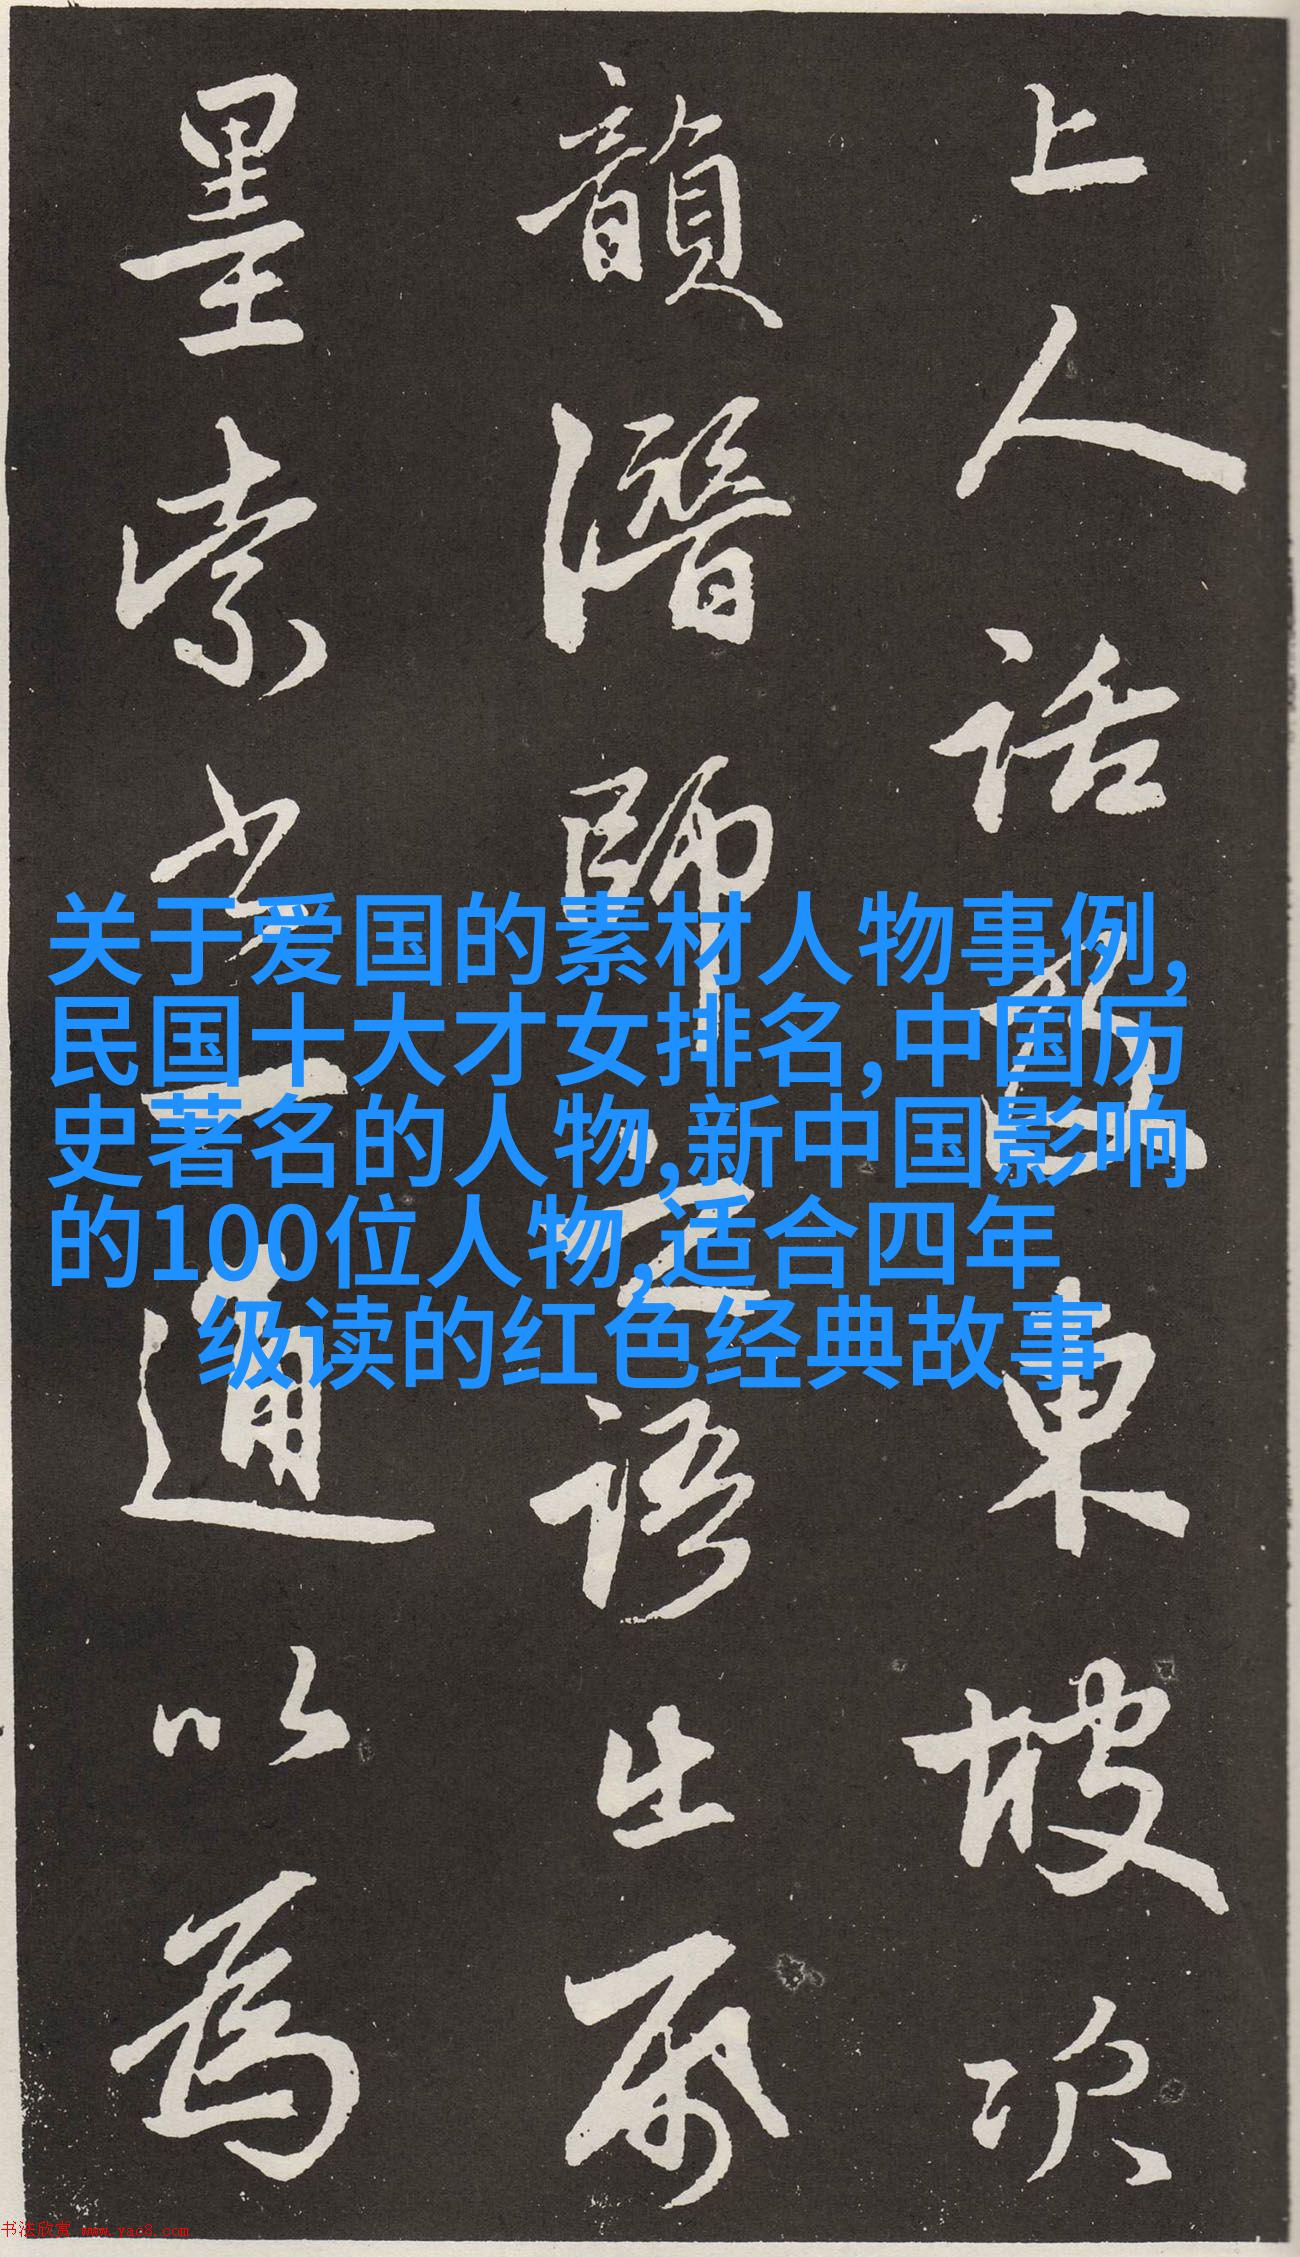 上人話及東坡次
韻潛師之語出帋
墨索書一通以為
关于爱国的素材人物事例,
民国十大才女排名,中国历
史著名的人物,新中国影响
的100位人物,适合四年
级读的红色经典故事
书法欣赏 www.yac8.com